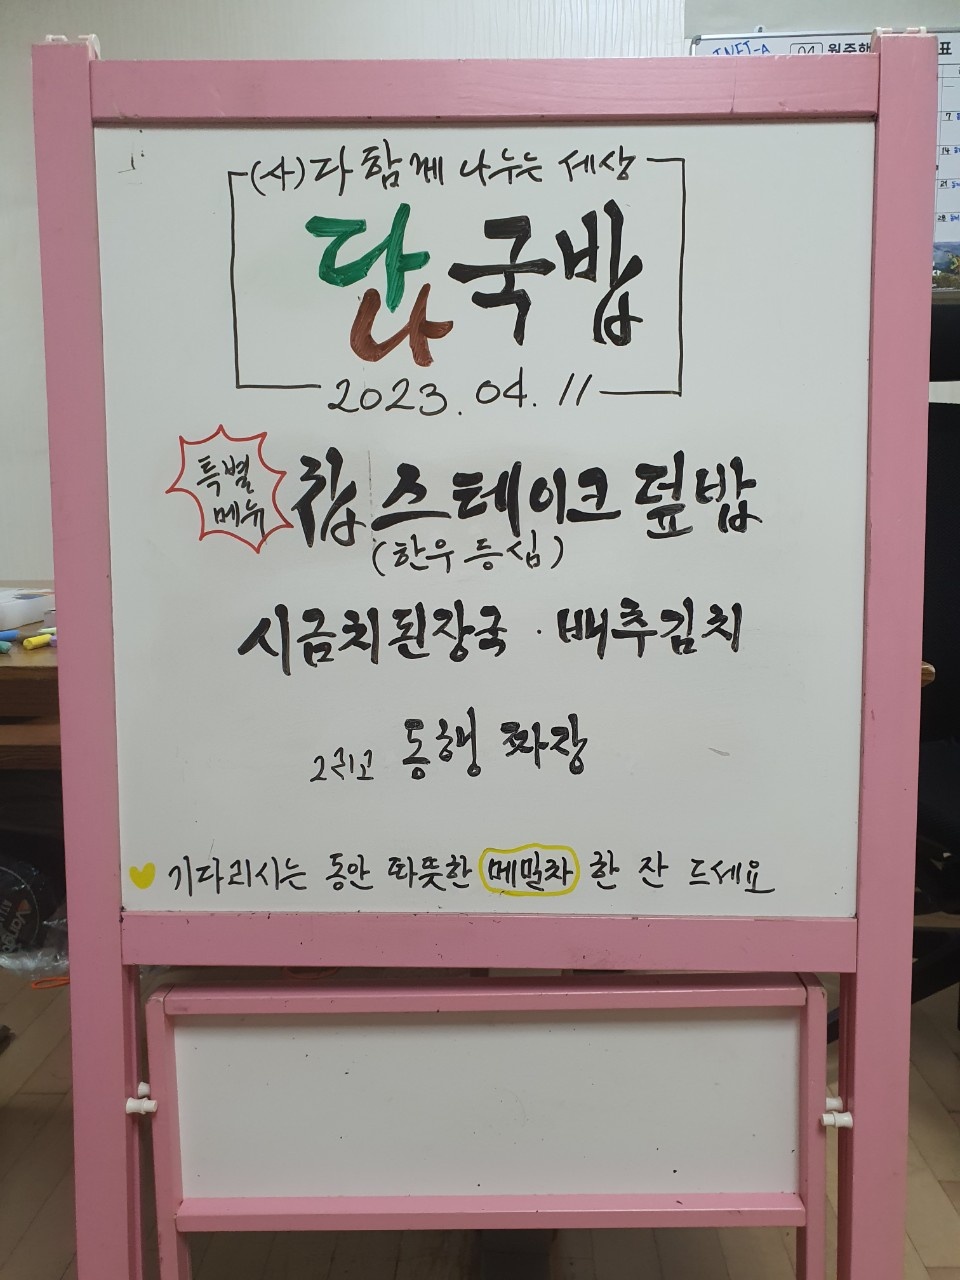 (사)다함께 나누는 세상
다나 국밥
2023. 04. 11
특별
메뉴
찹 스테이크 덮밥
(한우 등심)
시금치된장국 · 배추김치
그리고 동행 짜장
기다리시는 동안 따뜻한 메밀차 한 잔 드세요
04
7
14
21
28